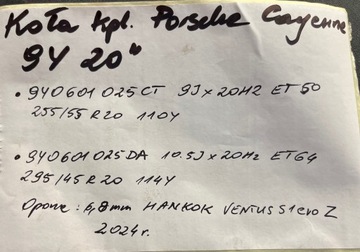 Koła kpl. Porsche Cayenne
9Y 20"
• 9Y0601025CT 9Jx20H2 ET50
255/55 R20 110Y
• 9Y0601025DA 10.5Jx20H2 ET64
295/45 R20 114Y
Opone: 6,8mm HANKOK VENTUS S1 evo Z
2024r.